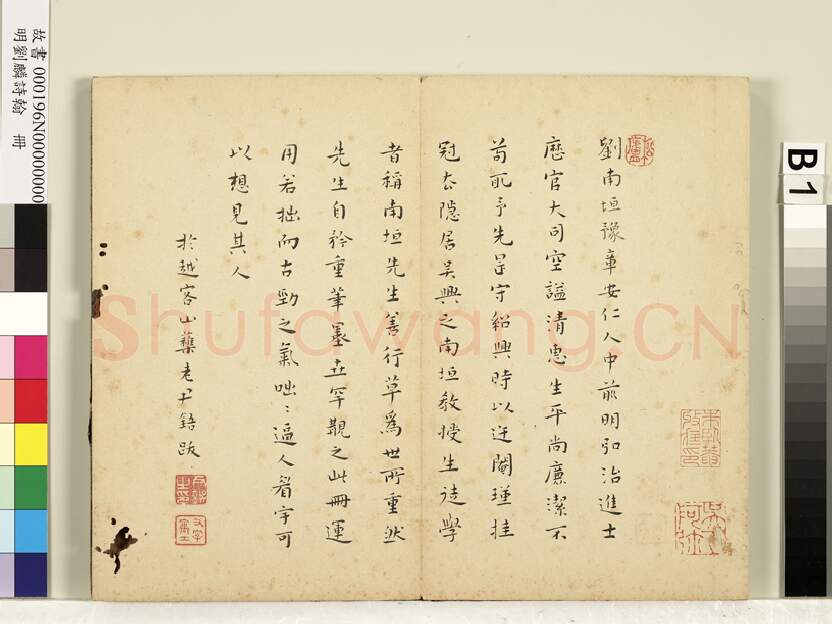 劉南垣豫章安仁人中前明弘治進士
歷官大司空謚清惠生平尚廉潔不
苟取予先是守紹興時以迕閹瑾挂
冠去隱居吳興之南垣教授生徒學
者稱南垣先生善行草為世所重然
先生自矜重筆墨亦罕覯之此冊運
用若拙而古勁之氣咄咄逼人看字可
以想見其人
於越客山藥老尹鋙跋
故書 000196N00000000
明劉麟詩翰 冊
B1
Shufawang.CN